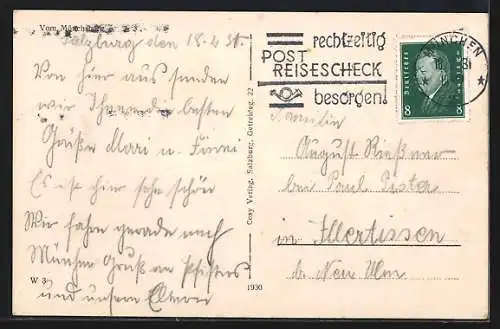 Vom Mönchsberg
Salzburg den 18.4 31.
Von hier aus senden
wir Ihnen die besten
Grüße Mari u Finni
Es ist hier sehr schön
Wir fahren gerade nach
München Gruß an Pfisters
und unsern Eltern
W 3
Cosy Verlag, Salzburg, Getreideg. 22
1930
rechtzeitig
POST
REISESCHECK
besorgen!
MÜNCHEN
18 31
DEUTSCHES REICH
8 8
Familie
August Rießner
bei Paul Pister
in Illertissen
b. Neu Ulm